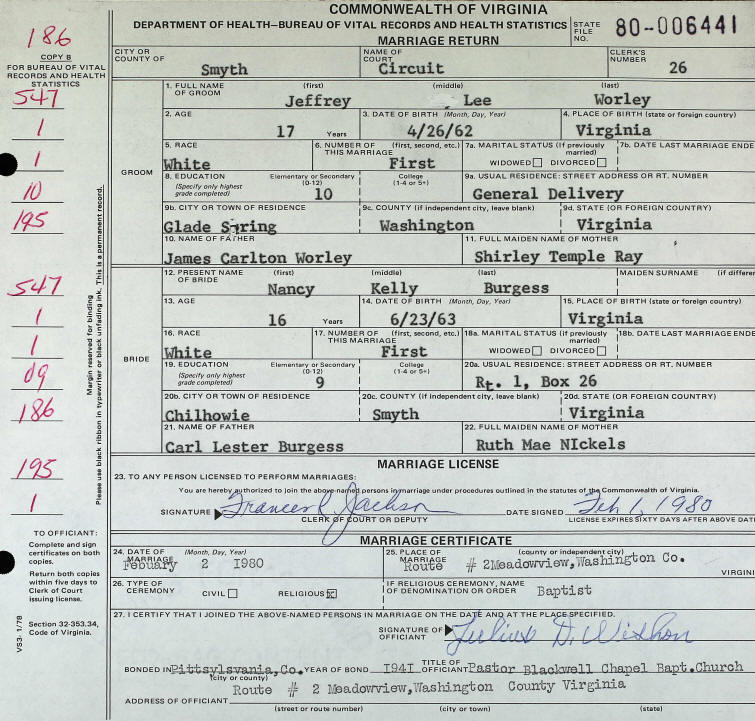 COMMONWEALTH OF VIRGINIA
DEPARTMENT OF HEALTH—BUREAU OF VITAL RECORDS AND HEALTH STATISTICS
MARRIAGE RETURN
STATE FILE NO. 80-006441
186
COPY B
FOR BUREAU OF VITAL
RECORDS AND HEALTH
STATISTICS
547
1
1
10
195
547
1
1
09
186
195
1
Margin reserved for binding
Please use black ribbon in typewriter or black unfading ink. This is a permanent record.
CITY OR COUNTY OF Smyth
NAME OF COURT Circuit
CLERK'S NUMBER 26
GROOM
1. FULL NAME OF GROOM (first) (middle) (last)
Jeffrey Lee Worley
2. AGE 17 Years
3. DATE OF BIRTH (Month, Day, Year) 4/26/62
4. PLACE OF BIRTH (state or foreign country) Virginia
5. RACE White
6. NUMBER OF THIS MARRIAGE (first, second, etc.) First
7a. MARITAL STATUS (If previously married) WIDOWED DIVORCED
7b. DATE LAST MARRIAGE ENDE
8. EDUCATION (Specify only highest grade completed) Elementary or Secondary (0-12) 10 College (1-4 or 5+)
9a. USUAL RESIDENCE: STREET ADDRESS OR RT. NUMBER General Delivery
9b. CITY OR TOWN OF RESIDENCE Glade Spring
9c. COUNTY (if independent city, leave blank) Washington
9d. STATE (OR FOREIGN COUNTRY) Virginia
10. NAME OF FATHER James Carlton Worley
11. FULL MAIDEN NAME OF MOTHER Shirley Temple Ray
BRIDE
12. PRESENT NAME OF BRIDE (first) (middle) (last) MAIDEN SURNAME (if differe
Nancy Kelly Burgess
13. AGE 16 Years
14. DATE OF BIRTH (Month, Day, Year) 6/23/63
15. PLACE OF BIRTH (state or foreign country) Virginia
16. RACE White
17. NUMBER OF THIS MARRIAGE (first, second, etc.) First
18a. MARITAL STATUS (If previously married) WIDOWED DIVORCED
18b. DATE LAST MARRIAGE ENDE
19. EDUCATION (Specify only highest grade completed) Elementary or Secondary (0-12) 9 College (1-4 or 5+)
20a. USUAL RESIDENCE: STREET ADDRESS OR RT. NUMBER Rt. 1, Box 26
20b. CITY OR TOWN OF RESIDENCE Chilhowie
20c. COUNTY (if independent city, leave blank) Smyth
20d. STATE (OR FOREIGN COUNTRY) Virginia
21. NAME OF FATHER Carl Lester Burgess
22. FULL MAIDEN NAME OF MOTHER Ruth Mae NIckels
MARRIAGE LICENSE
23. TO ANY PERSON LICENSED TO PERFORM MARRIAGES:
You are hereby authorized to join the above-named persons in marriage under procedures outlined in the statutes of the Commonwealth of Virginia.
SIGNATURE Frances R. Jackson DATE SIGNED Feb 1, 1980
CLERK OF COURT OR DEPUTY LICENSE EXPIRES SIXTY DAYS AFTER ABOVE DAT
MARRIAGE CERTIFICATE
TO OFFICIANT:
Complete and sign
certificates on both
copies.
Return both copies
within five days to
Clerk of Court
issuing license.
Section 32-353.34,
Code of Virginia.
VS3- 1/78
24. DATE OF MARRIAGE (Month, Day, Year) Febuary 2 I980
25. PLACE OF MARRIAGE (county or independent city) Route # 2Meadowview,Washington Co. VIRGINI
26. TYPE OF CEREMONY CIVIL RELIGIOUS X
IF RELIGIOUS CEREMONY, NAME OF DENOMINATION OR ORDER Baptist
27. I CERTIFY THAT I JOINED THE ABOVE-NAMED PERSONS IN MARRIAGE ON THE DATE AND AT THE PLACE SPECIFIED.
SIGNATURE OF OFFICIANT Julius D.
BONDED IN Pittsylsvania,Co. YEAR OF BOND I94I TITLE OF OFFICIANT Pastor Blackwell Chapel Bapt.Church
(city or county)
ADDRESS OF OFFICIANT Route # 2 Meadowview,Washington County Virginia
(street or route number) (city or town) (state)